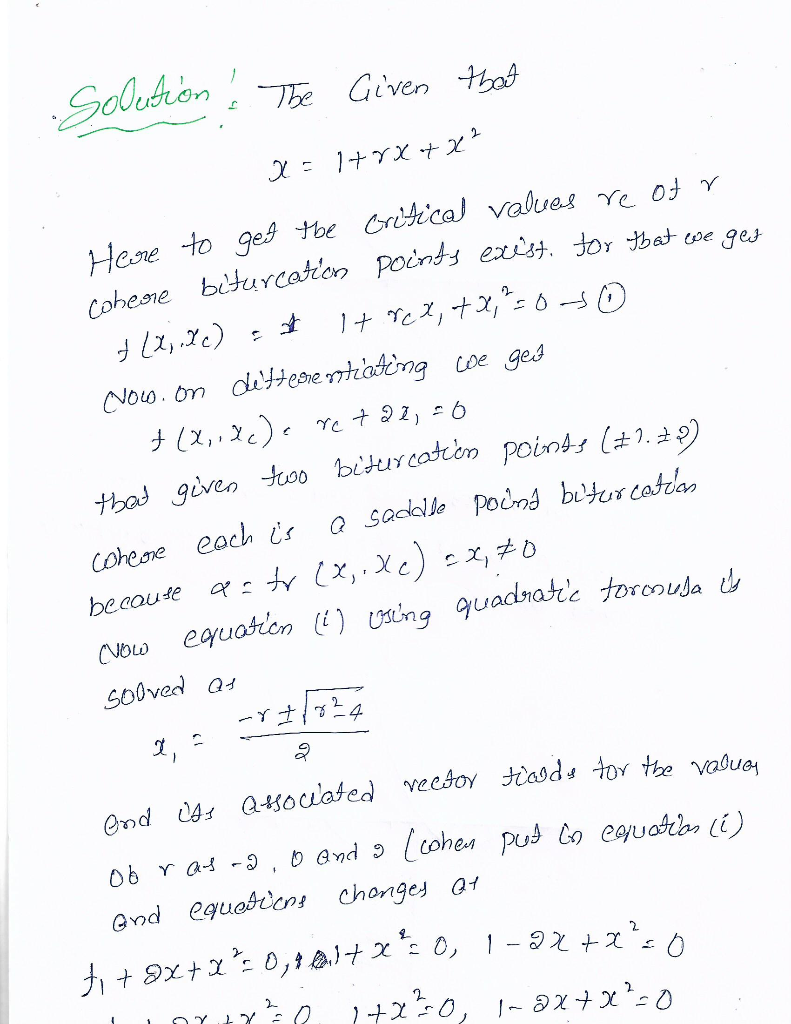 Solution: The Given that
x = 1+rx+x²
Here to get the critical values rc of r
where bifurcation points exist. for that we get
f(x₁,xc) = 1+ rcx₁+x₁²=0 → ①
Now. on differentiating we get
f(x₁,xc) = rc+2x₁=0
that given two bifurcation points (±1.±2)
where each is a saddle point bifurcation
because a = fr (x₁,xc) = x₁≠0
Now equation (i) using quadratic formula is
solved as
x₁ = (-r±√(r²-4))/2
and its associated vector fields for the values
ob r as -2, 0 and 2 (when put in equation (i)
and equations changes as
f₁+2x+x²=0, 1+x²=0, 1-2x+x²=0
1+x²=0, 1-2x+x²=0